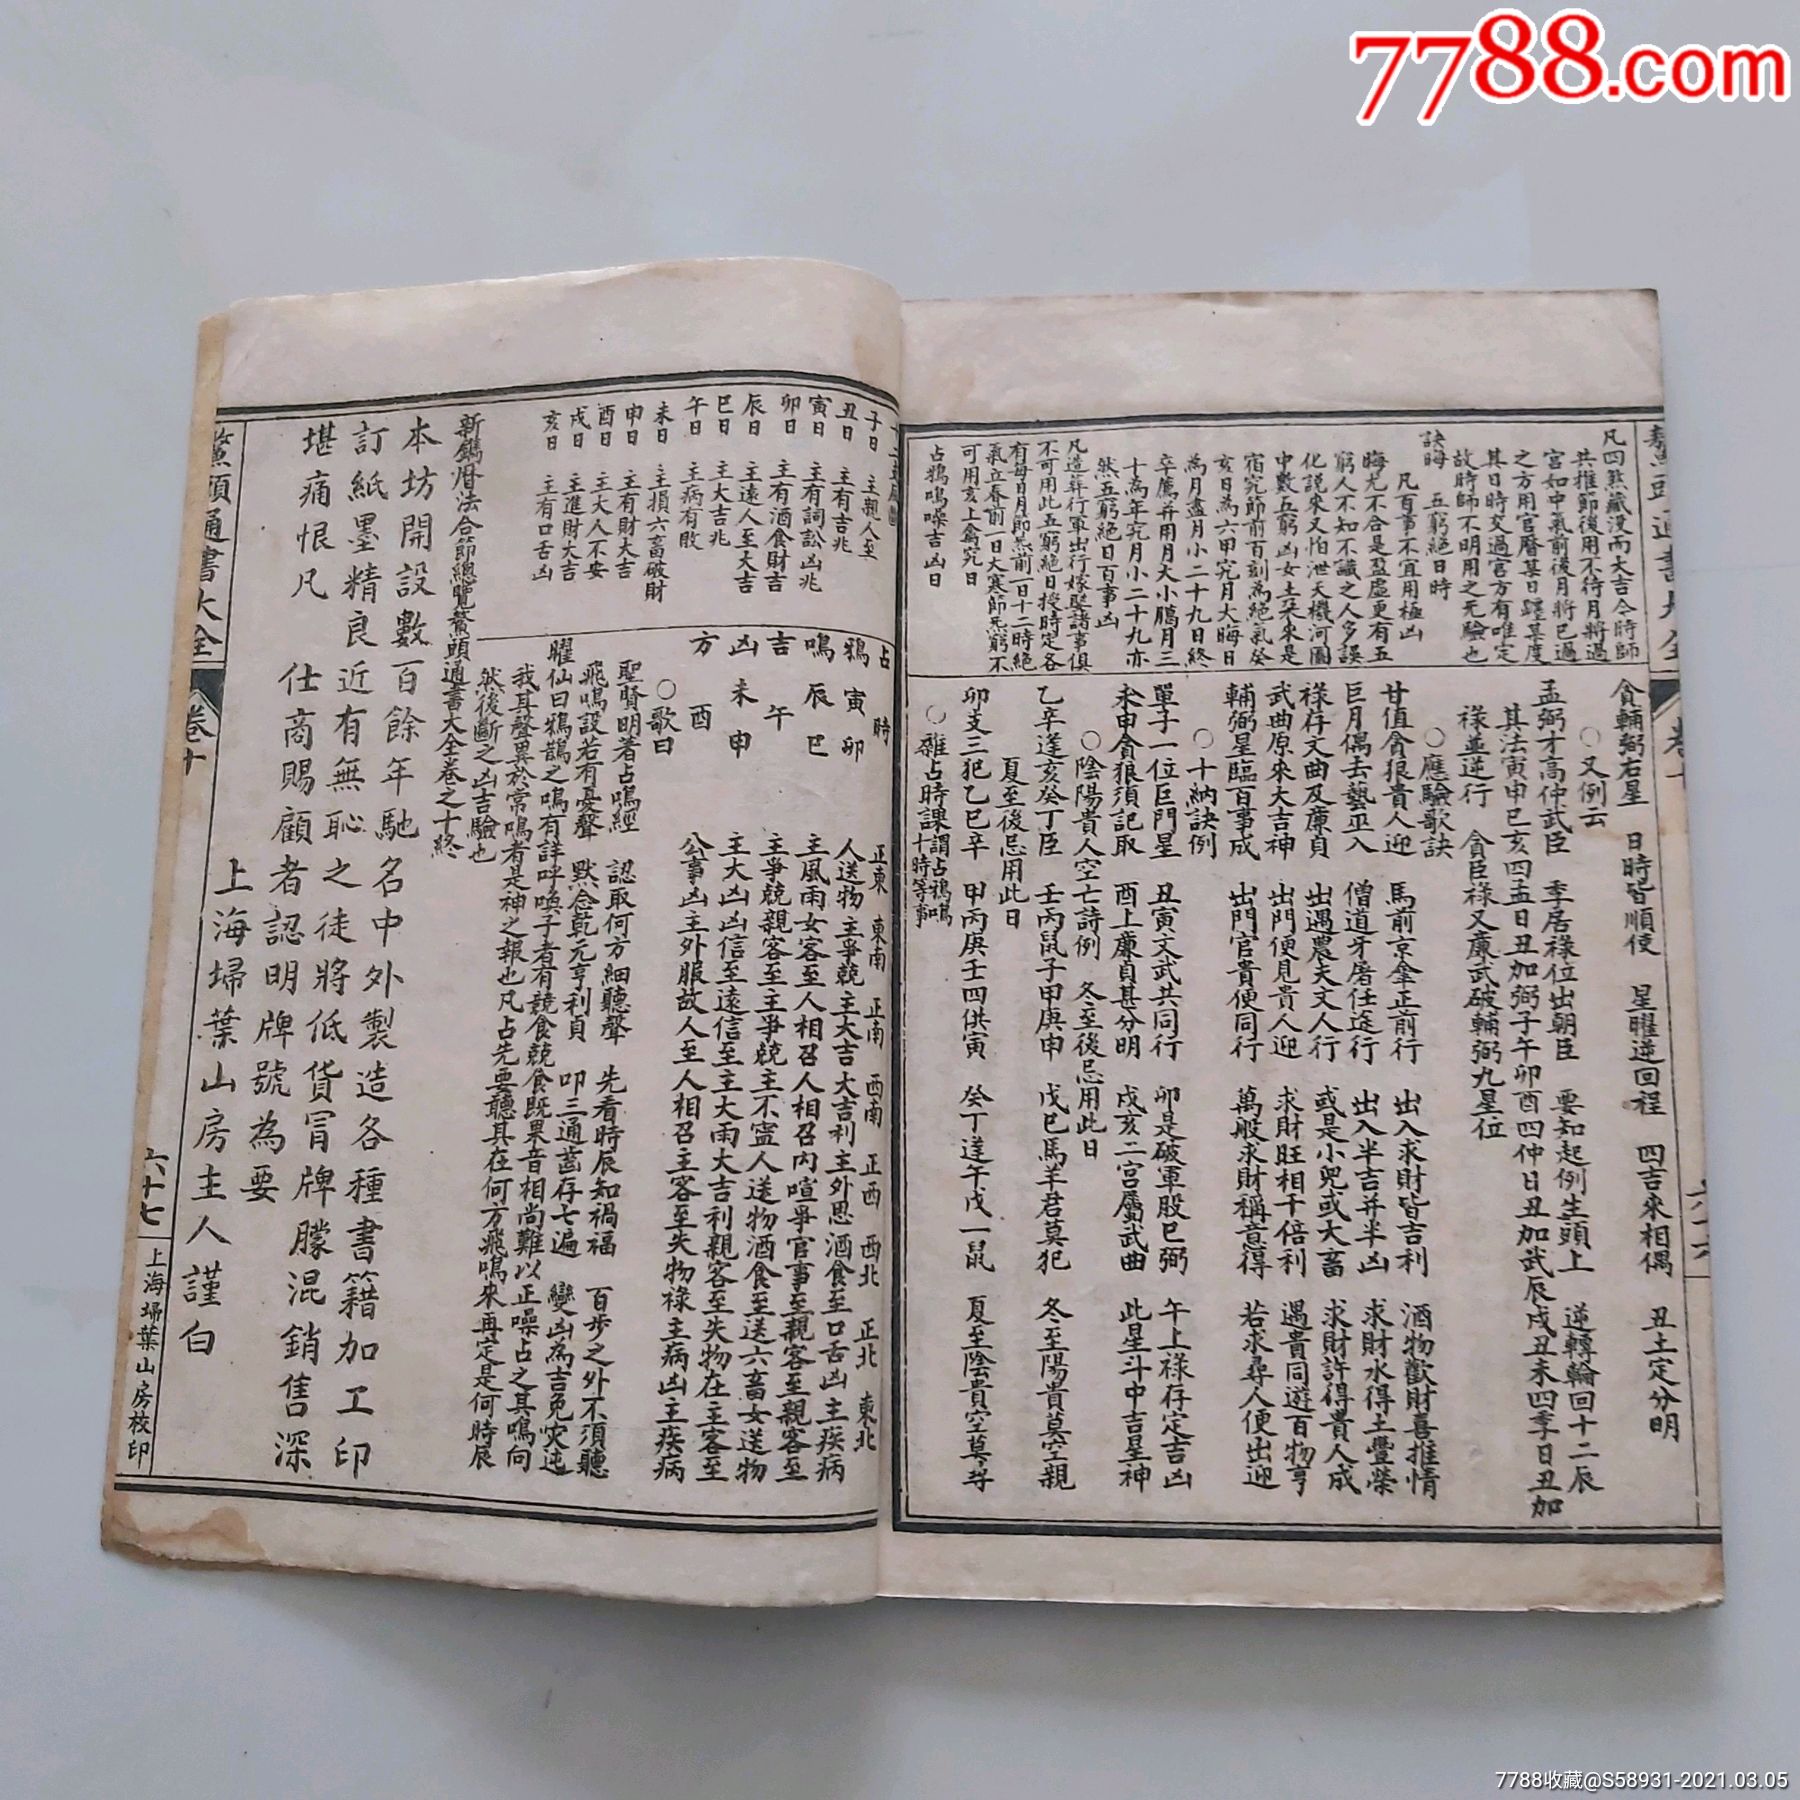 7788.com
鰲頭通書大全
卷十
六十六
凡四煞藏没而大吉今時師
共推節後用不待月將過
宮如中氣前後月將已過
之方用官曆某日躔某度
其日時交過宮方有唯定
故時師不明用之无驗也
訣晦 五窮絕日時
凡百事不宜用極凶
晦尤不合是盈虛更有五
窮人不知不識之人多誤
化說來又怕泄天機河圖
中數五窮凶女土朵來是
宿究節前百刻為絕氣癸
亥日為六甲究月大晦日
為月盡月小二十九日終
卒廌并用月大小臈月三
十為年究月小二十九亦
然五窮絕日百事凶
凡造葬行軍出行嫁娶諸事俱
不可用此五窮絕日授時定各
有每日月節炁前一日十二時絕
氣立春前一日大寒節死窮不
可用亥上禽究日
占鴉鳴噪吉凶日
貪輔弼右星 日時皆順使 星曜逆回程 四吉來相偶 丑土定分明
○又例云
孟弼才高仲武臣 季居祿位出朝臣 要知起例生頭上 逆轉輪回十二辰
其法寅申巳亥四孟日丑加弼子午卯酉四仲日丑加武辰戌丑未四季日丑加
祿並逆行 貪臣祿文廉武破輔弼九星位
○應驗歌訣
甘值貪狼貴人迎 馬前京傘正前行 出入求財皆吉利 酒物歡財喜推情
巨月偶去藝巫入 僧道牙屠任途行 出入半吉并半凶 求財水得土豐榮
祿存文曲及廉貞 出遇農夫文人行 或是小兒或大畜 求財許得貴人成
武曲原來大吉神 出門便見貴人迎 求財旺相千倍利 遇貴同遊百物亨
輔弼星臨百事成 出門官貴便同行 萬般求財稱意得 若求尋人便出迎
○十納訣例
單子一位巨門星 丑寅文武共同行 卯是破軍股巳弼 午上祿存定吉凶
未申貪狼須記取 酉上廉貞甚分明 戌亥二宮屬武曲 此星斗中吉星神
○陰陽貴人空亡詩例 冬至後忌用此日
乙辛逢亥癸丁臣 壬丙鼠子甲庚申 戊巳馬羊君莫犯 冬至陽貴莫空親
夏至後忌用此日
卯支三犯乙巳辛 甲丙庚壬四供寅 癸丁逢午戊一鼠 夏至陰貴空莫尋
○雜占時課 謂占鴉鳴十時等事
子日 主親人至
丑日 主有吉兆
寅日 主有詞訟凶兆
卯日 主有酒食財吉
辰日 主遠人至大吉
巳日 主大吉兆
午日 主病有敗
未日 主損六畜破財
申日 主有財大吉
酉日 主大人不安
戌日 主進財大吉
亥日 主有口舌凶
占 時 正東 東南 正南 西南 正西 西北 正北 東北
鴉 寅卯 人送物主爭競主大吉大吉利主外思酒食至口舌凶主疾病
鳴 辰巳 主風雨女客至人相召人相召內喧爭官事至親客至親客至
吉 午 主爭競親客至主爭競主不寍人送物酒食至送六畜女送物
凶 未申 主大凶凶信至遠信至主大雨大吉利親客至失物在主客至
方 酉 公事凶主外服故人至人相召主客至失物祿主病凶主疾病
○歌曰
聖賢明著占鳴經 認取何方細聽聲 先看時辰知禍福 百步之外不須聽
飛鳴設若有憂聲 默念乾元亨利貞 叩三通茵存七遍 變凶為吉免灾迍
曜仙曰鴉鵲之鳴有詳呼喚子者有競食競食既果音相尚難以正噪占之其鳴向
我其聲異於常鳴者是神之報也凡占先要聽其在何方飛鳴來再定是何時辰
然後斷之凶吉驗也
新鐫曆法合節總覽鰲頭通書大全卷之十終
本坊開設數百餘年馳名中外製造各種書籍加工印
訂紙墨精良近有無恥之徒將低貨冒牌朦混銷售深
堪痛恨凡 仕商賜顧者認明牌號為要
上海埽葉山房主人謹白
鰲頭通書大全
卷十
六十七
上海埽葉山房校印
7788收藏@S58931-2021.03.05